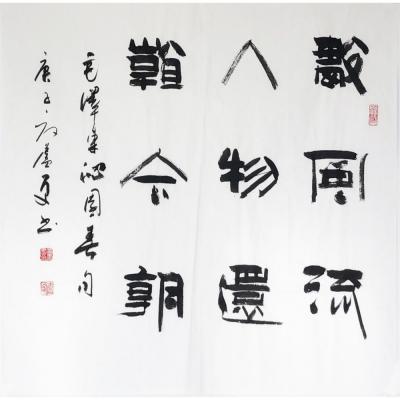 數風流
人物還
看今朝
毛澤東沁園春句
庚子書